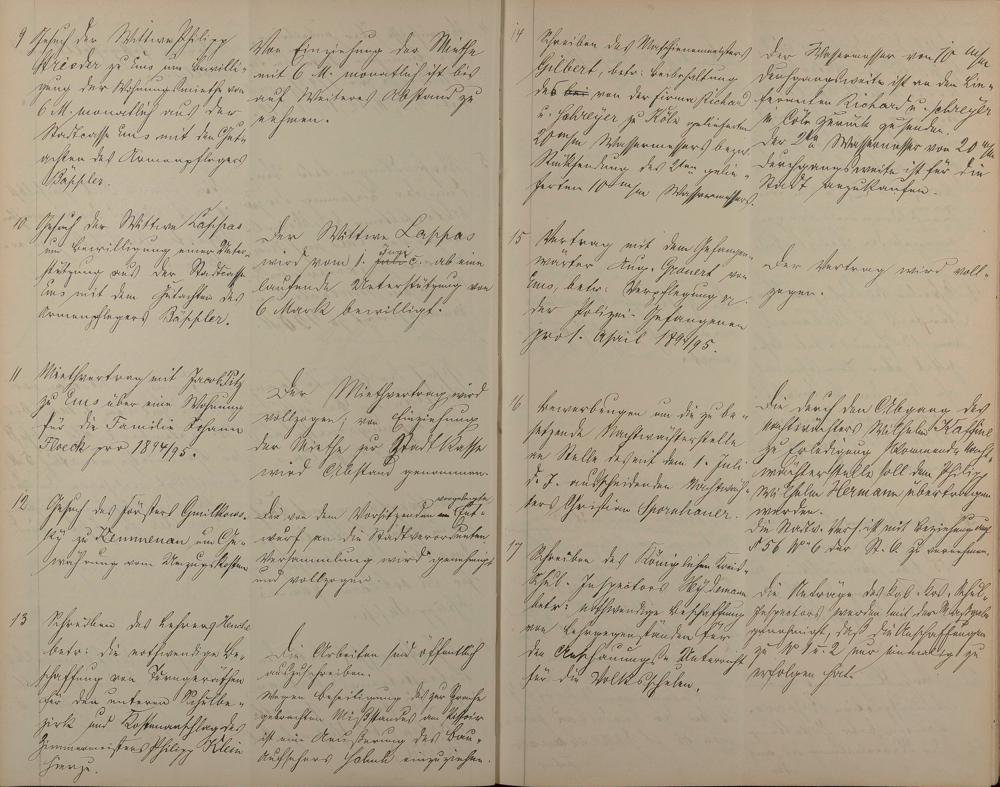 9 Gesuch der Wittwe Philipp
Strieder zu Ems um Bewilli-
gung der Wohnungsmiethe von
6 M. monatlich aus der
Stadtcasse Ems mit dem Gut-
achten des Armenpflegers
Bäppler.
Von Einziehung der Miethe
mit 6 M. monatlich ist bis
auf Weiteres Abstand zu
nehmen.
10 Gesuch der Wittwe Lappas
um Bewilligung einer Unter-
stützung aus der Stadtcasse
Ems mit dem Gutachten des
Armenpflegers Bäppler.
Der Wittwe Lappas
wird vom 1. Juni c. ab eine
laufende Unterstützung von
6 Mark bewilligt.
11 Miethvertrag mit Jacob
zu Ems über eine Wohnung
für die Familie Johann
Floeck pro 1894/95.
Der Miethvertrag wird
vollzogen; von Einziehung
der Miethe zur Stadtkasse
wird Abstand genommen.
12 Gesuch des Försters Gmilkows-
ky zu Kemmenau um Ge-
währung von Umzugskosten
Der von dem Vorsitzenden vorgelegte Ent-
wurf an die Stadtverordneten
Versammlung wird genehmigt
und vollzogen.
13 Schreiben des Lehrers
betr: die nothwendige Be-
schaffung von Turngeräthen
für den unteren Schulbe-
zirk und Kostenanschlag des
Zimmermeisters Philipp Klein
hierzu.
Die Arbeiten sind öffentlich
auszuschreiben.
Wegen Beseitigung des zur Sprache
gebrachten Mißstandes am Pissoir
ist eine Aeußerung des Bau-
Aufsehers einzuziehen.
14 Schreiben des Maschienenmeisters
Gilbert, betr: Beibehaltung
des von der Firma Richard
u. Schreyer zu Köln gelieferten
20 m/m Wassermessers bezw.
Rücksendung des 2ten gelie-
ferten 10 m/m Wassermessers.
Der Wassermesser von 10 m/m
Durchgangsweite ist an den Lie-
feranten Richard u. Schreyer
in Cöln zurück zu senden.
Der 2te Wassermesser von 20 m/m
Durchgangsweite ist für die
Stadt anzukaufen.
15 Vertrag mit dem Gefangen-
wärter Aug. Gronert von
Ems, betr: Verpflegung pp.
der Polizei-Gefangenen
pro 1. April 1894/95.
Der Vertrag wird voll-
zogen.
16 Bewerbungen um die zu be-
setzende Nachtwächterstelle
an Stelle des mit dem 1. Juli
d. J. ausscheidenden Nachtwäch-
ters Christian Spornhauer.
Die durch den Abgang des
Nachtwächters Wilhelm
zu Erledigung kommende Nacht-
wächterstelle soll dem Philipp
Wilhelm Hermann übertragen
werden.
Die Stadtv. Vers. ist mit Beziehung auf
§ 56 No 6 der St. O. zu vernehmen.
17 Schreiben des Königlichen Kreis-
Schul-Inspectors Wydemann
betr: nothwendige Beschaffung
von Lehrgegenständen für
den Anschauungs-Unterricht
für die Volksschulen.
Die Anträge des Kgl. Krs. Schul-
Inspectors werden mit der Maßgabe
genehmigt, daß die Anschaffungen
zu No 1 u. 2 nur einmalig zu
erfolgen hat.